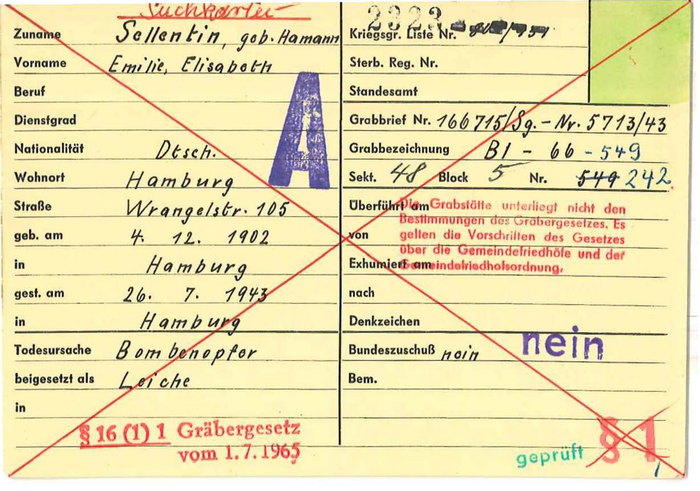 Suchkartei
Zuname Sellentin, geb. Hamann
Vorname Emilie, Elisabeth
Beruf
Dienstgrad
Nationalität Dtsch.
Wohnort Hamburg
Straße Wrangelstr. 105
geb. am 4. 12. 1902
in Hamburg
gest. am 26. 7. 1943
in Hamburg
Todesursache Bombenopfer
beigesetzt als Leiche
in
§ 16 (1) 1 Gräbergesetz
vom 1.7.1965
A
2323
Kriegsgr. Liste Nr.
Sterb. Reg. Nr.
Standesamt
Grabbrief Nr. 166715/Sg. - Nr. 5713/43
Grabbezeichnung BI - 66 - 549
Sekt. 48 Block 5 Nr. 549 242.
Überführt am
von
Exhumiert am
Die Grabstätte unterliegt nicht den
Bestimmungen des Gräbergesetzes. Es
gelten die Vorschriften des Gesetzes
über die Gemeindefriedhöfe und der
Gemeindefriedhofsordnung.
nach
Denkzeichen
Bundeszuschuß nein nein
Bem.
geprüft § 1